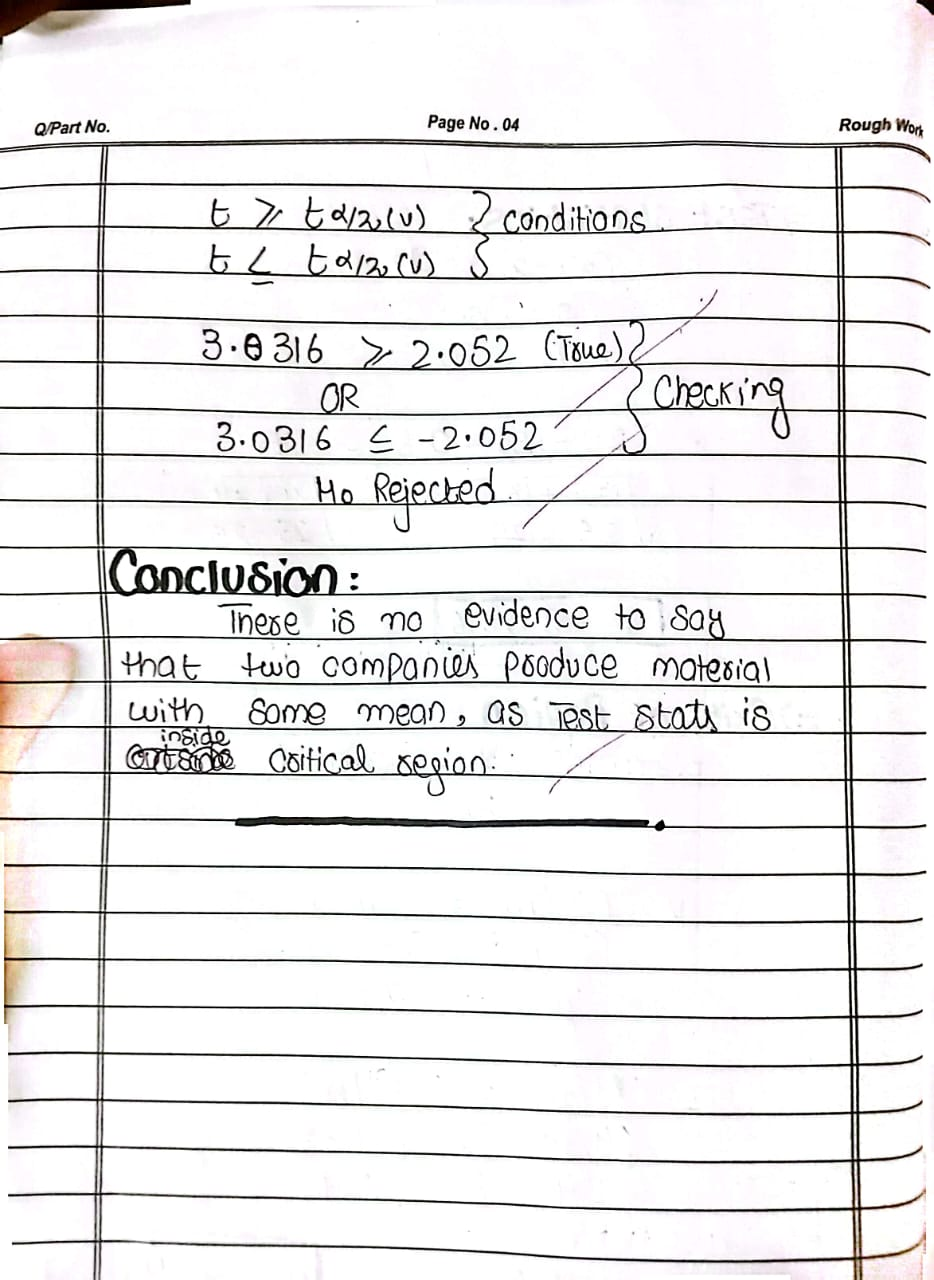 Q/Part No. Page No . 04 Rough Work
t ≥ tα/2,(v) } conditions.
t ≤ tα/2,(v)
3.0316 ≥ 2.052 (True) } Checking
OR
3.0316 ≤ -2.052
Ho Rejected.
Conclusion:
There is no evidence to say
that two companies produce material
with same mean, as Test stats is
inside
outside critical region.